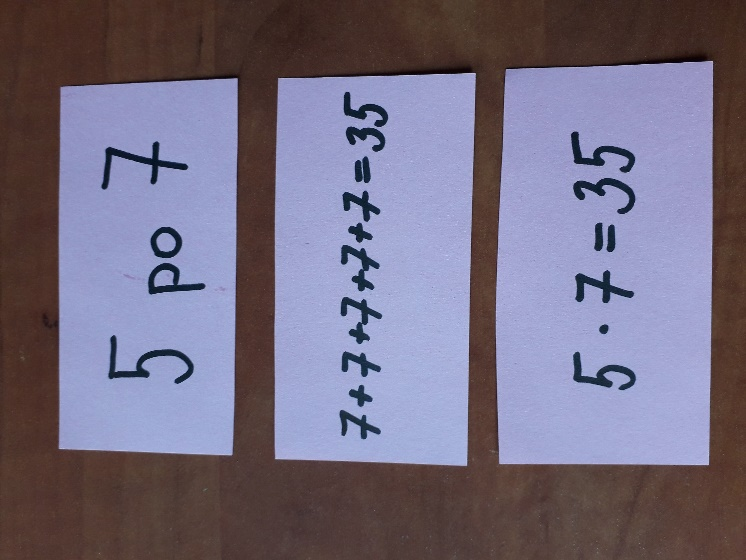 5 po 7
7+7+7+7+7=35
5·7=35